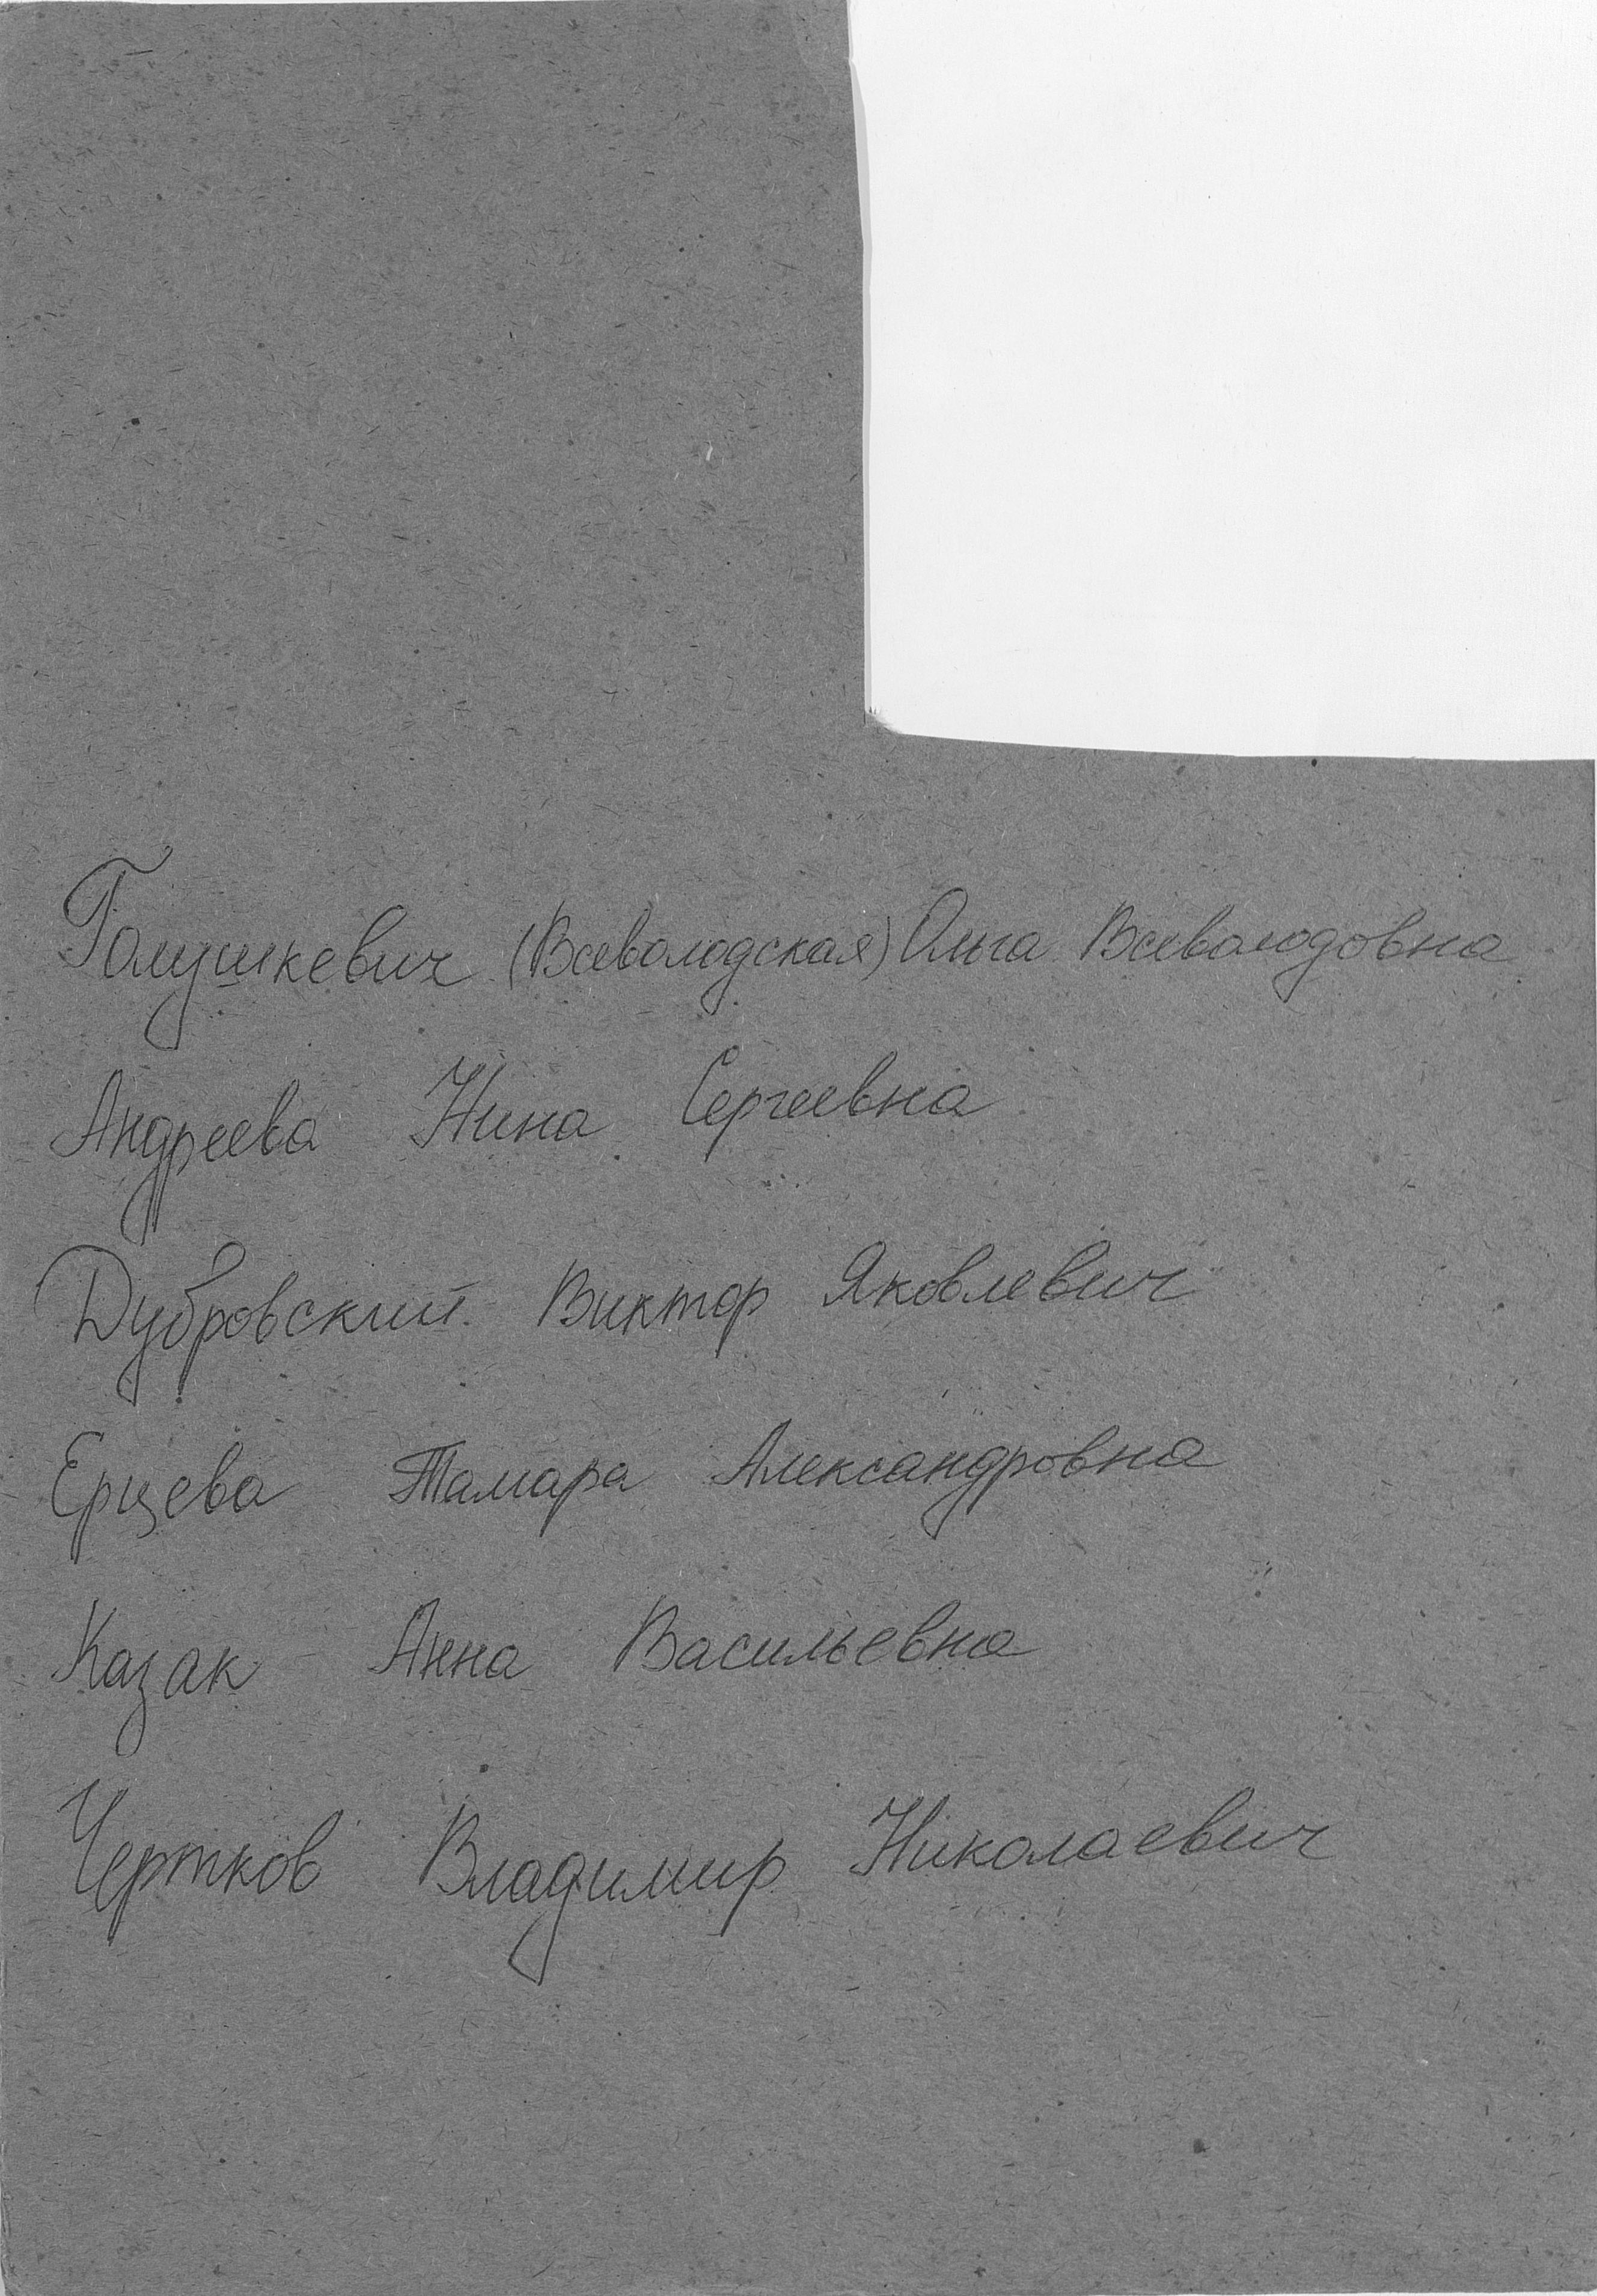 Галушкевич (Всеволодская) Ольга Всеволодовна
Андреева Нина Сергеевна
Дубровский Виктор Яковлевич
Ерцева Тамара Александровна
Казак Анна Васильевна
Чертков Владимир Николаевич